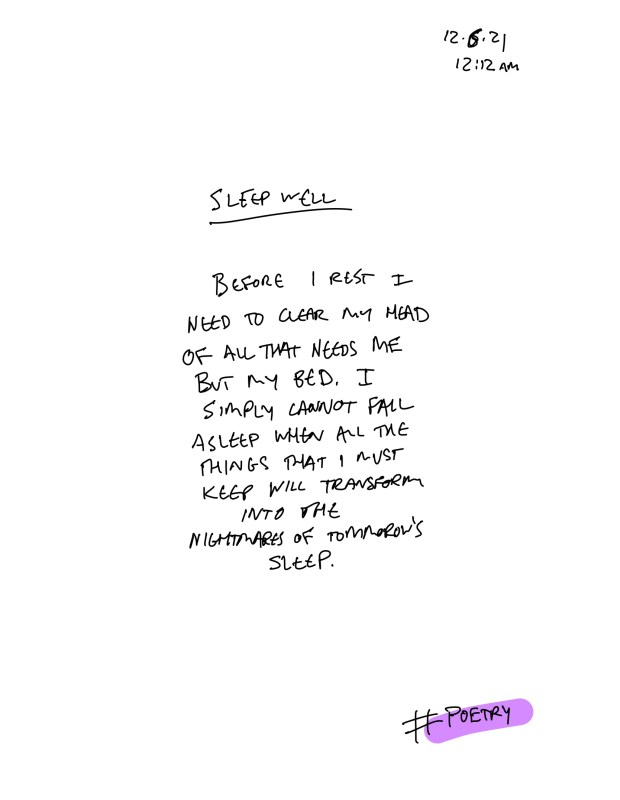 12.6.21
12:12 AM
SLEEP WELL
BEFORE I REST I
NEED TO CLEAR MY HEAD
OF ALL THAT NEEDS ME
BUT MY BED. I
SIMPLY CANNOT FALL
ASLEEP WHEN ALL THE
THINGS THAT I MUST
KEEP WILL TRANSFORM
INTO THE
NIGHTMARES OF TOMMOROW'S
SLEEP.
#POETRY